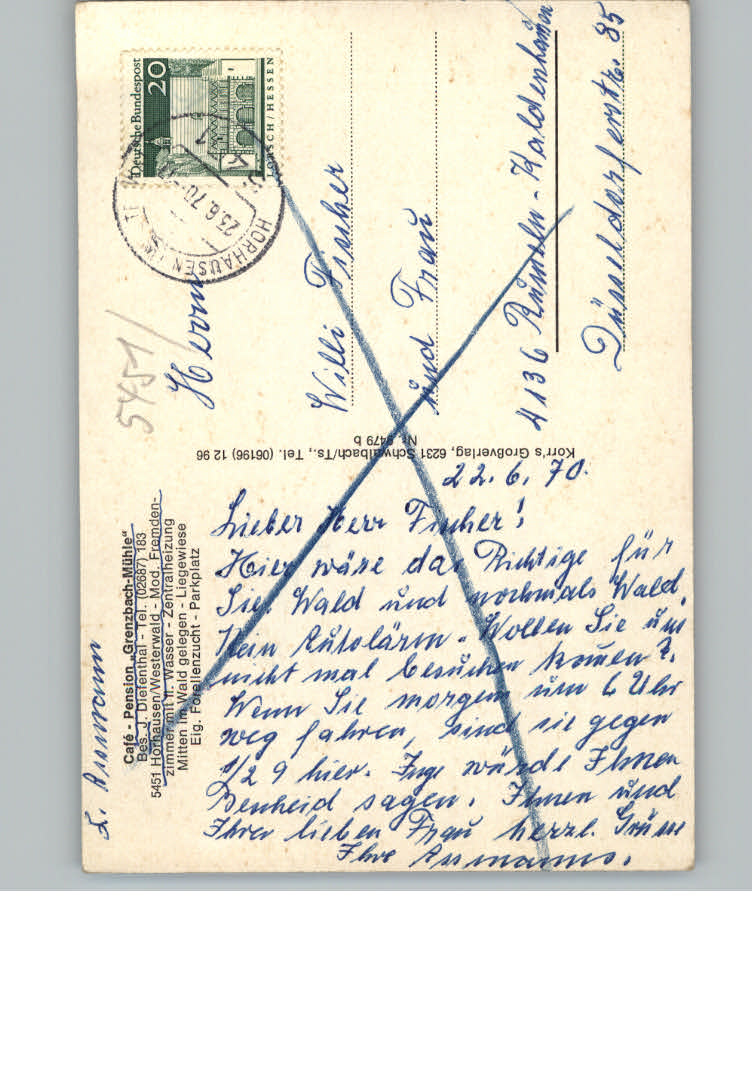 Café - Pension „Grenzbach-Mühle"
Bes. J. Diefenthal - Tel. (02687) 183
5451 Horhausen/Westerwald - Mod. Fremden-
zimmer mit fl. Wasser - Zentralheizung
Mitten im Wald gelegen - Liegewiese
Eig. Forellenzucht - Parkplatz
L. Assmann
22. 6. 70.
Lieber Herr Fischer!
Hier wäre das Richtige für
Sie. Wald und nochmals Wald
Kein Autolärm. Wollen Sie uns
nicht mal besuchen komen?.
Wenn Sie morgens um 6 Uhr
weg fahren, sind sie gegen
1/2 9 hier. Inge würde Ihnen
Bescheid sagen. Ihnen und
Ihrer lieben Frau herzl. Grüsse
Ihre Assmanns.
Korr's Großverlag, 6231 Schwalbach/Ts., Tel. (06196) 12 96
Nr. 9479 b
5451
Deutsche Bundespost
20
LORSCH/HESSEN
HORHAUSEN
23.6.70
5451
Herrn
Willi Fischer
und Frau
4136 Rumeln-Kaldenhausen
Düsseldorferstr. 85